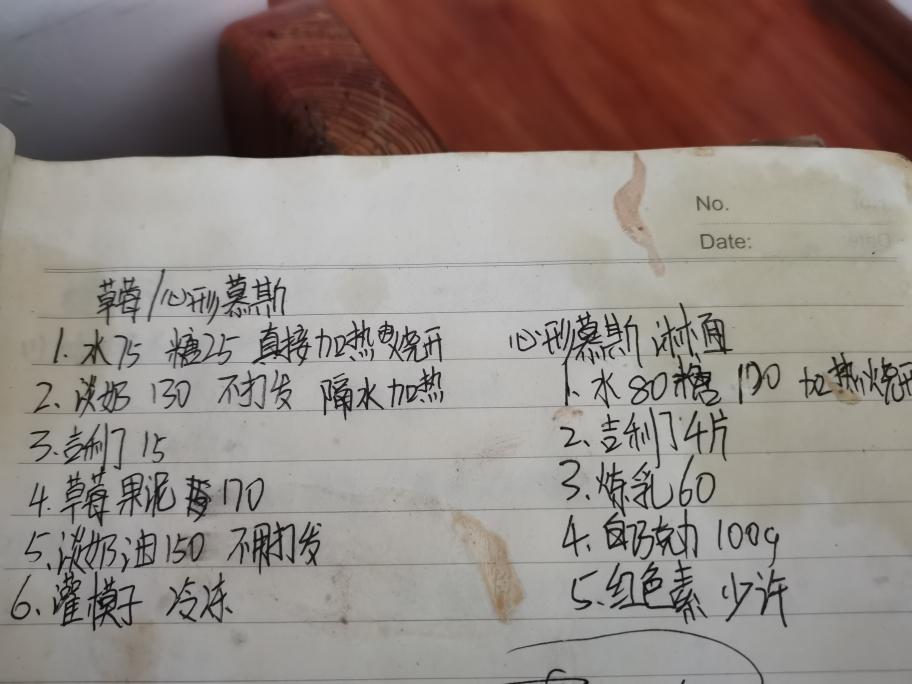 No.
Date:
草莓/心形慕斯
1. 水75 糖25 直接加热烧开
2. 淡奶 130 不打发 隔水加热
3. 吉利丁 15
4. 草莓果泥 170
5. 淡奶油 150 不用打发
6. 灌模子 冷冻
心形慕斯 淋面
1. 水 80 糖 加热烧开
2. 吉利丁4片
3. 炼乳60
4. 白巧克力 100g
5. 红色素 少许